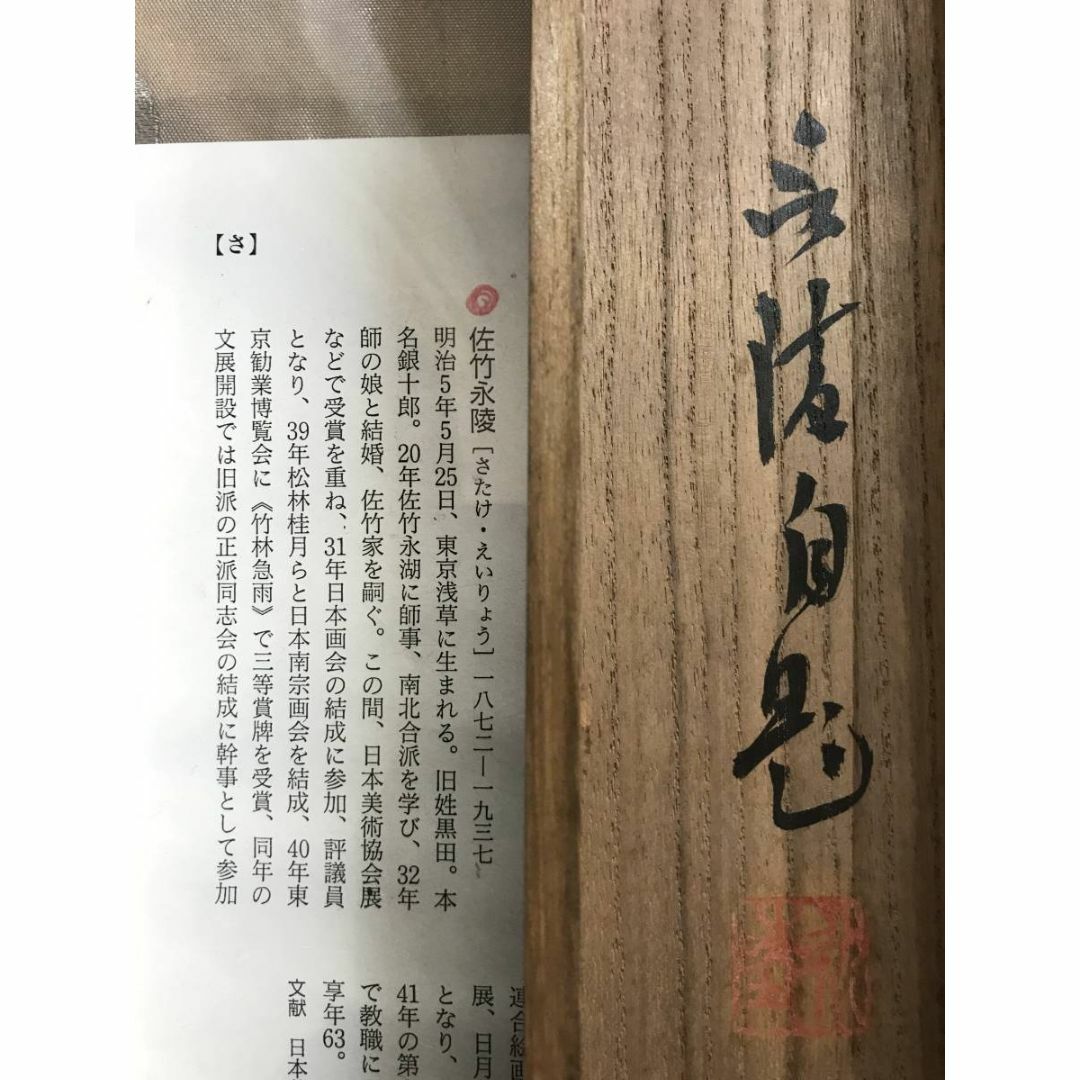 【さ】
佐竹永陵［さたけ・えいりょう］一八七二—一九三七
明治5年5月25日、東京浅草に生まれる。旧姓黒田。本
名銀十郎。20年佐竹永湖に師事、南北合派を学び、32年
師の娘と結婚、佐竹家を嗣ぐ。この間、日本美術協会展
などで受賞を重ね、31年日本画会の結成に参加、評議員
となり、39年松林桂月らと日本南宗画会を結成、40年東
京勧業博覧会に《竹林急雨》で三等賞牌を受賞、同年の
文展開設では旧派の正派同志会の結成に幹事として参加
連合絵画
展、日月
となり、
41年の第
で教職に
享年63。
文献 日本
永陵自題